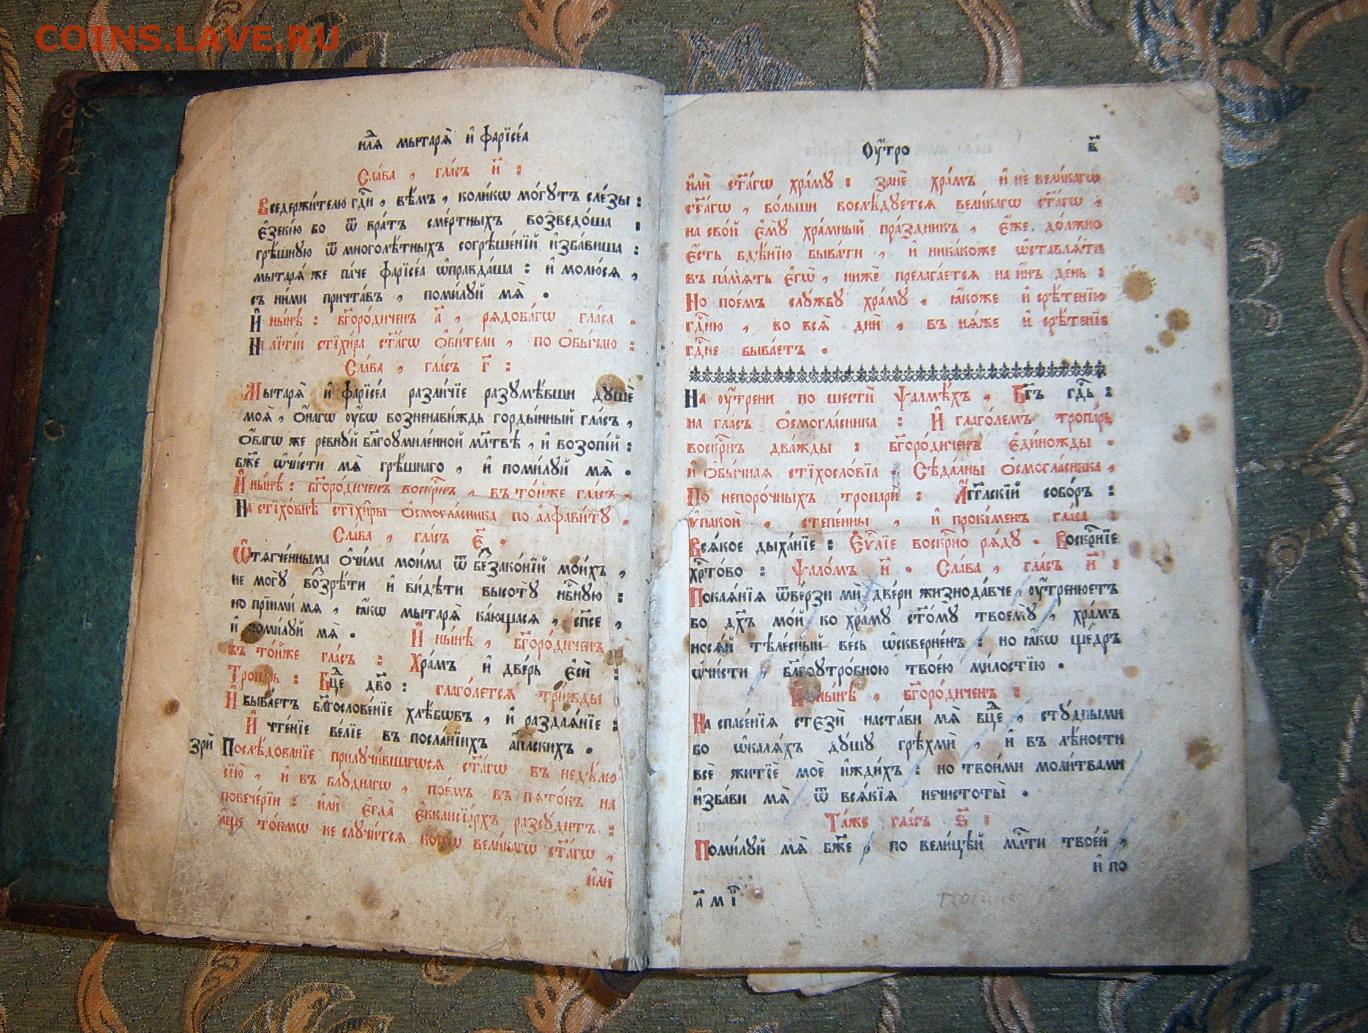 COINS.LAVE.RU
нлѧ мытарѧ̀ и҆ фарїсе́а
Сла́ва , гла́съ и҃ :
Вседержи́телю гдⷭ҇и , вѣ́мъ , коли́кѡ мо́гꙋтъ сле́зы :
є҆зекі́ю бо ѿ вра́тъ сме́ртныхъ возведо́ша :
грѣ́шнꙋю ѿ многолѣ́тныхъ согрѣше́нїй и҆зба́виша :
мытарѧ́ же па́че фарїсе́а ѡ҆правда́ша : и҆ молю́сѧ ,
съ ни́ми причта́въ , поми́лꙋй мѧ̀ .
И҆ нн҃ѣ : бг҃оро́диченъ а҃ , рѧдова́гѡ гла́са .
На лїті́и стїхи́ра ст҃а́гѡ ѻ҆би́тели , по ѻ҆бы́чаю :
Сла́ва , гла́съ г҃ :
Мытарѧ̀ и҆ фарїсе́а разли́чїе разꙋмѣ́вши дꙋшѐ
моѧ̀ , ѻ҆́нагѡ ᲂу҆́бѡ возненави́ждь горды́нный гла́съ ,
ѻ҆́вагѡ же ревнꙋ́й бл҃гоꙋмиле́нной мл҃твѣ , и҆ возопі́й :
бж҃е ѡ҆чи́сти мѧ̀ грѣ́шнаго , и҆ поми́лꙋй мѧ̀ .
И҆ нн҃ѣ : бг҃оро́диченъ воскрⷭ҇нъ , въ то́йже гла́съ ,
На стїхо́внѣ стїхи̑ры ѻ҆смогла́сника по а҆лфави́тꙋ .
Сла́ва , гла́съ є҃ .
Ѡ҆тѧгче́нныма ѻ҆чи́ма мои́ма ѿ беззако́нїй мои́хъ ,
не могꙋ̀ воззрѣ́ти и҆ ви́дѣти высотꙋ̀ нбⷭ҇нꙋю :
но прїими́ мѧ , ꙗ҆́кѡ мытарѧ̀ ка́ющасѧ , сп҃се ,
и҆ поми́лꙋй мѧ̀ . И҆ нн҃ѣ , бг҃оро́диченъ
въ то́йже гла́съ : Хра́мъ и҆ две́рь є҆сѝ :
Тропа́рь : Бц҃е дв҃о : глаго́летсѧ три́жды
И҆ быва́етъ благослове́нїе хлѣ́бѡвъ , и҆ раздаѧ́нїе :
И҆ чте́нїе ве́лїе въ посла́нїихъ а҆пⷭ҇льскихъ .
Зрѝ Послѣ́дованїе прилꙋчи́вшагѡсѧ ст҃а́гѡ въ недѣ́лю
сїю̀ , и҆ въ блꙋ́днагѡ , пое́мъ въ пѧто́къ на
повече́рїи : и҆лѝ є҆гда̀ є҆кклисїа́рхъ разсꙋ́дитъ :
а҆́ще то́кмѡ не слꙋчи́тсѧ коегѡ̀ вели́кагѡ ст҃а́гѡ ,
и҆лѝ
Оу҆́тро в҃
и҆лѝ ст҃а́гѡ хра́мꙋ : занѐ хра́мъ и҆ не вели́кагѡ
ст҃а́гѡ , бо́льши послѣ́дꙋетсѧ вели́кагѡ ст҃а́гѡ ,
на сво́й є҆мꙋ̀ хра́мный пра́здникъ , є҆́же до́лжно
є҆́сть бдѣ́нїю быва́ти , и҆ ника́коже ѡ҆ставлѧ́ти
въ па́мѧть є҆гѡ̀ , нижѐ прелага́етсѧ на и҆́нъ де́нь :
Но пое́мъ слꙋ́жбꙋ хра́мꙋ , ꙗ҆́коже и҆ срѣ́тенїю
гдⷭ҇ню , во всѧ̑ дни̑ , въ нѧ́же и҆ срѣ́тенїе
гдⷭ҇не быва́етъ .
На ᲂу҆́трени по шестѝ ѱалмѣ́хъ , Бг҃ъ гдⷭ҇ь :
на гла́съ ѻ҆смогла́сника : И҆ глаго́лемъ тропа́рь
воскрⷭ҇нъ два́жды : бг҃оро́диченъ є҆ди́ножды .
и҆ ѻ҆бы́чнаѧ стїхосло́вїѧ . Сѣда́льны ѻ҆смогла́сника ,
По непоро́чныхъ тропари̑ : А҆́гг҃льскїй собо́ръ :
ѵ҆пакоѝ , степе́нны , и҆ прокі́менъ гла́са :
Всѧ́кое дыха́нїе : Є҆ѵⷢ҇лїе воскрⷭ҇но рѧ́дꙋ . Воскрⷭ҇нїе
хрⷭ҇то́во : Ѱало́мъ н҃ . Сла́ва , гла́съ и҃ :
Покаѧ́нїѧ ѿве́рзи мѝ две́ри жизнода́вче , ᲂу҆́тренюетъ
бо дх҃ъ мо́й ко хра́мꙋ ст҃о́мꙋ твоемꙋ̀ , хра́мъ
носѧ́й тѣле́сный ве́сь ѡ҆скверне́нъ : но ꙗ҆́кѡ ще́дръ
ѡ҆чи́сти , бл҃гоꙋтро́бною твое́ю ми́лостїю .
И҆ нн҃ѣ , бг҃оро́диченъ :
На спасе́нїѧ стезѝ наста́ви мѧ̀ бц҃е , стꙋ́дными
бо ѡ҆калѧ́хъ дꙋ́шꙋ грѣхмѝ , и҆ въ лѣ́ности
всѐ житїѐ моѐ и҆жди́хъ : но твои́ми моли́твами
и҆зба́ви мѧ̀ ѿ всѧ́кїѧ нечистоты̀ .
Та́же гла́съ ѕ҃ :
Поми́лꙋй мѧ̀ бж҃е , по вели́цѣй мл҃ти твое́й ,
и҆ по
а҃ м і҃